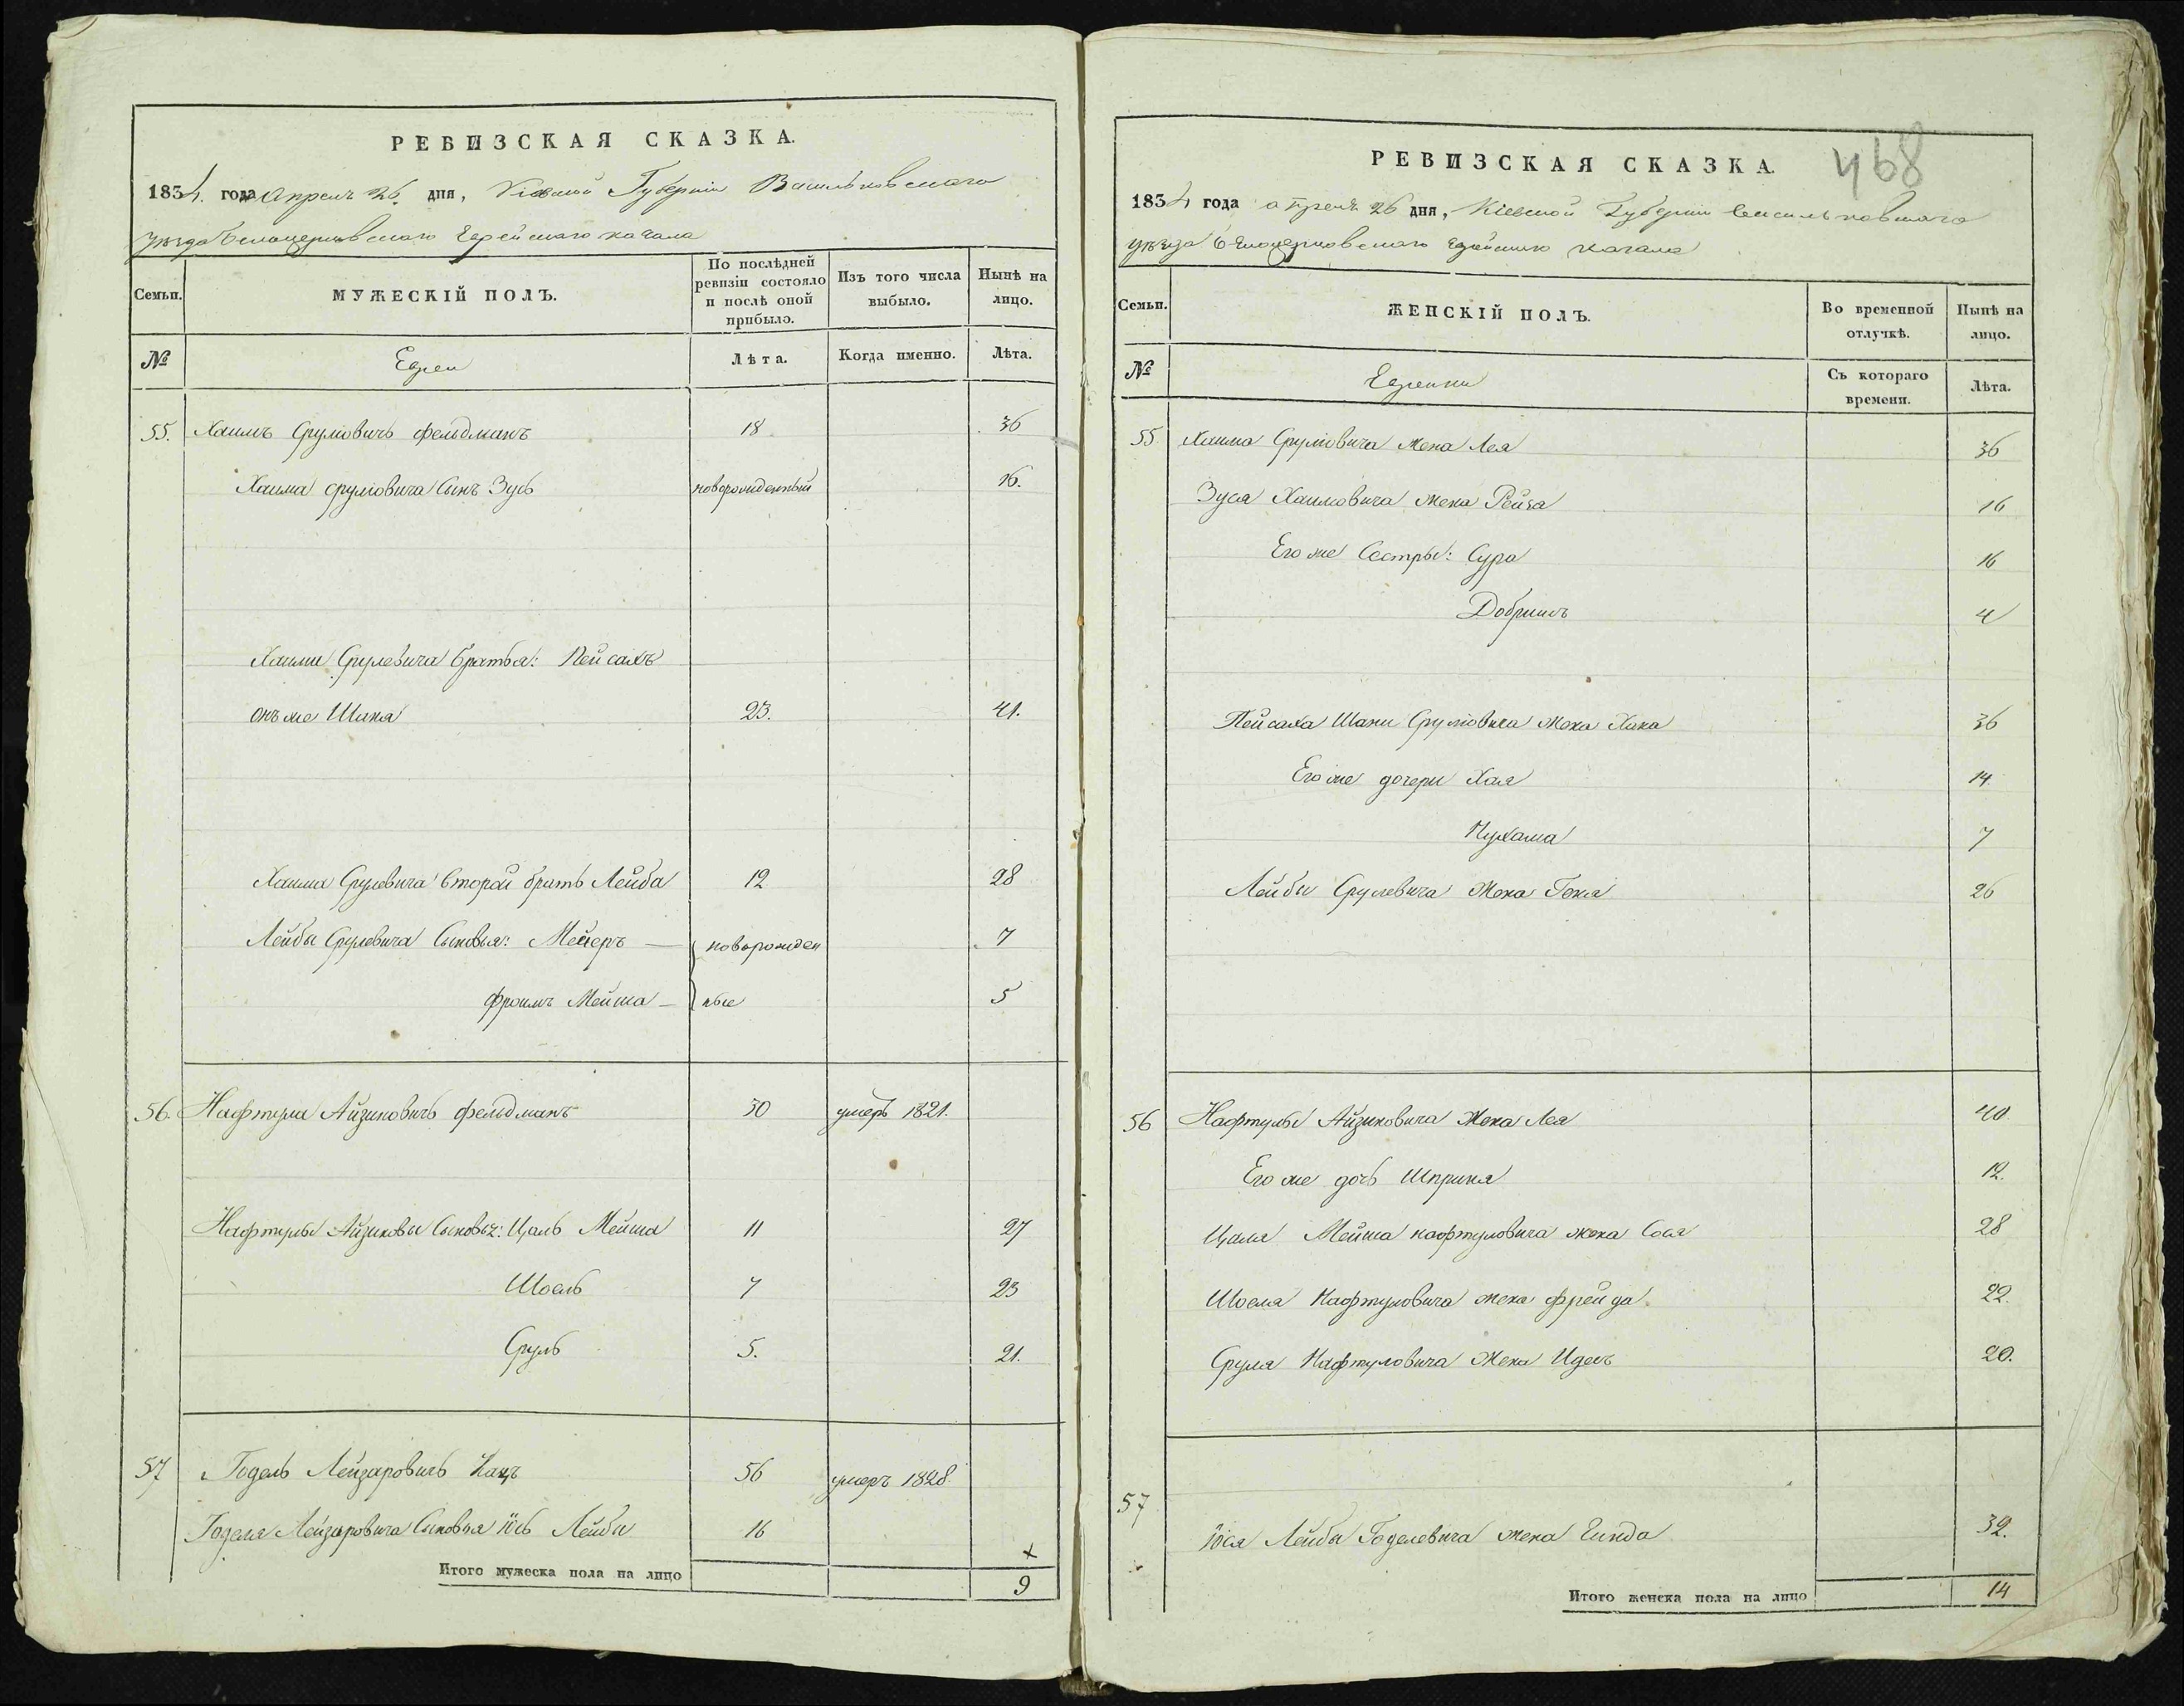 РЕВИЗСКАЯ СКАЗКА.
1834. года Апреля 26. дня, Кіевской Губерніи Васильковскаго
уѣзда Белоцерковскаго Еврейскаго кагала
Семьи. МУЖЕСКІЙ ПОЛЪ. По послѣдней ревизіи состояло и послѣ оной прибыло. Изъ того числа выбыло. Нынѣ на лицо.
№ Евреи Лѣта. Когда именно. Лѣта.
55. Хаимъ Сруліовичъ Фельдманъ 18 36
Хаима Сруліовича Сынъ Зусь новорожденный 16.
Хаима Срулевича братья: Пейсахъ
онъ же Шаня 23. 41.
Хаима Срулевича Второй братъ Лейба 12 28
Лейбы Срулевича Сыновья: Мейеръ — новорожден 7
Фроимъ Мейша — ные 5
56. Нафтула Айзиковичъ Фельдманъ 30 умеръ 1821.
Нафтулы Айзикова Сыновья: Цаль Мейша 11 27
Шоель 7 23
Сруль 5. 21.
57 Годель Лейзаровичъ Кацъ 56 умеръ 1828
Годеля Лейзаровича Сыновья Іось Лейбы 16 х
Итого мужеска пола на лицо 9
468
РЕВИЗСКАЯ СКАЗКА.
1834 года апреля 26 дня, Кіевской Губерніи Васильковскаго
уѣзда Белоцерковскаго Еврейскаго кагала
Семьи. ЖЕНСКІЙ ПОЛЪ. Во временной отлучкѣ. Нынѣ на лицо.
№ Еврейки Съ котораго времени. Лѣта.
55 Хаима Сруліовича жена Лея 36
Зуся Хаимовича жена Рейза 16
Его же Сестры: Сура 16
Добришъ 4
Пейсаха Шани Сруліовича жена Хика 36
Его же дочери Хая 14
Нухама 7
Лейбы Срулевича жена Геня 26
56 Нафтулы Айзиковича жена Лея 40
Его же дочь Шприня 12.
Цаля Мейша нафтуловича жена Сося 28
Шоеля Нафтуловича жена Фрейда 22.
Сруля Нафтуловича жена Идесъ 20.
57 Іося Лейбы Годелевича жена Гинда 32.
Итого женска пола на лицо 14